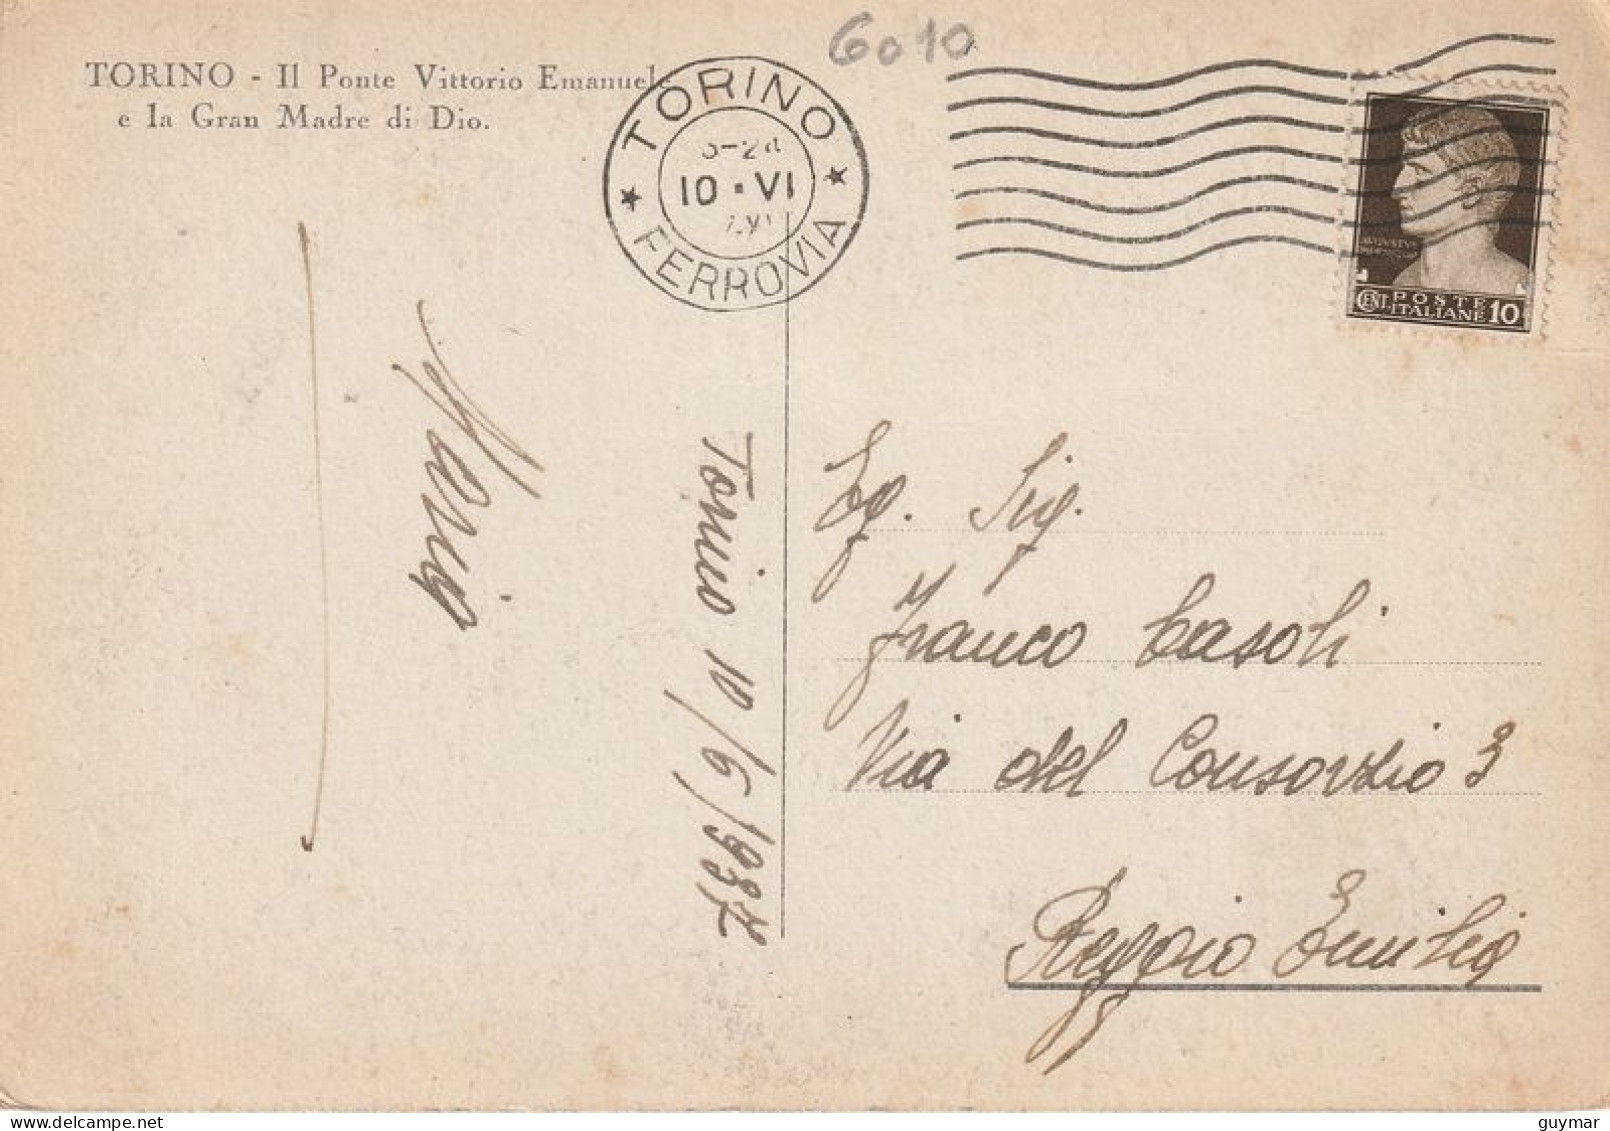 6010
TORINO - Il Ponte Vittorio Emanuele
e la Gran Madre di Dio.
TORINO
10 • VI
FERROVIA
POSTE
CENT. ITALIANE 10
Maria
Torino 10/6/1937
Eg. Sig.
Franco Casoli
Via del Consorzio 3
Reggio Emilia
guymar